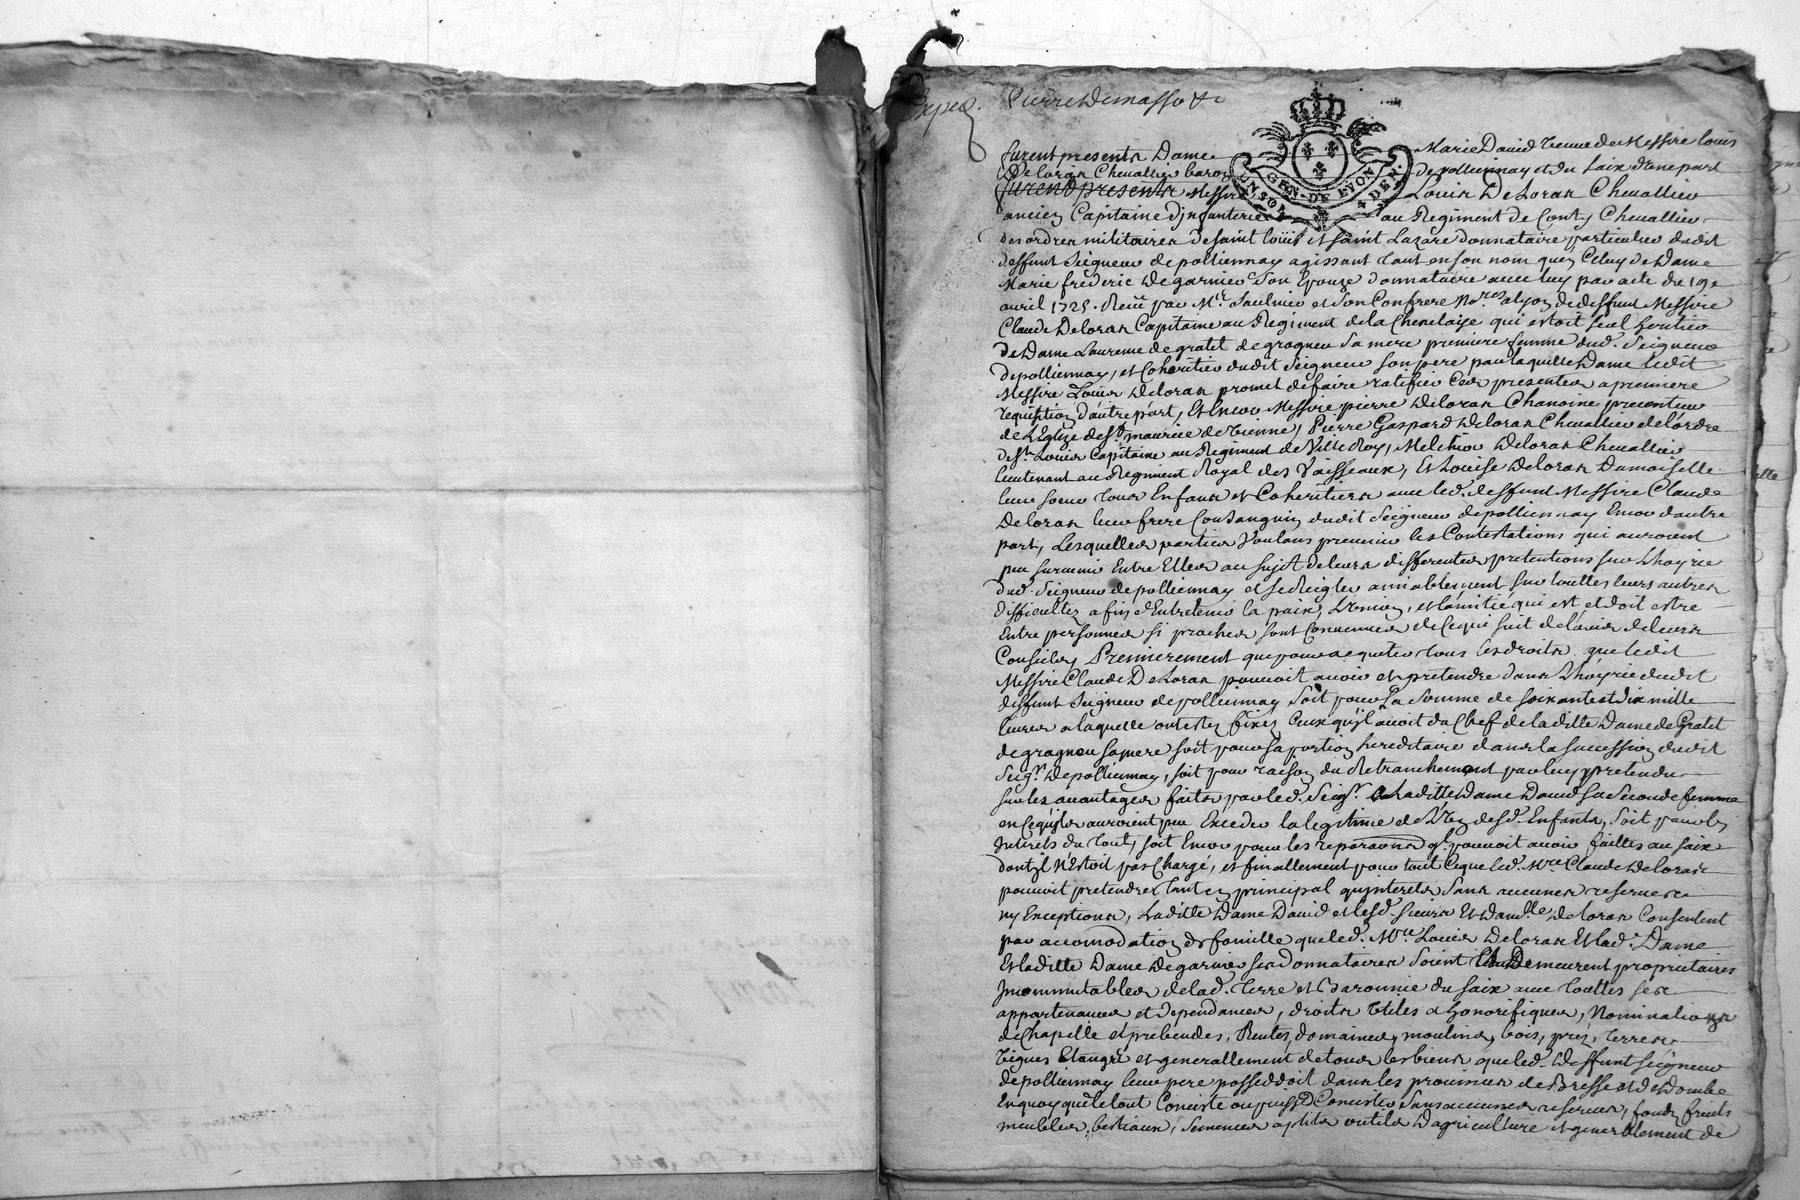 Exped. Pierre Demasso &c
furent presents Dame Marie David veuve de Messire Louis
De Loras Chevallier baron de polliennay et du Saix d'une part
furent presents Messire Louis De Loras Chevallier
UN SOL GEN. DE LYON 4 DEN.
ancien Capitaine d'jnfanterie au Regiment de Conty Chevallier
des ordres militaires de saint loüis et saint Lazare donnataire particulier dudit
deffunt Seigneur de polliennay agissant tant en son nom que Celuy de Dame
Marie frederic de garnier son Epouze donnataire avec luy par acte du 19e
avril 1725. Receu par Me. Saulnier et son Confrere Nores. a lyon de deffunt Messire
Claude De loras Capitaine au Regiment de la Chenelaye qui estoit seul heritier
de Dame Laurence de gratet de gragneu sa mere premiere femme dud. Seigneur
de polliennay, et Coheritier dudit Seigneur son pere par laquelle Dame ledit
Messire Loüis De loras promet de faire ratifier Ces presentes a premiere
requisition d'autre part, Et Encor Messire pierre De loras Chanoine precenteur
de L'Eglize de St. maurice de vienne, Pierre Gaspard De loras Chevallier de l'ordre
de St. Louis Capitaine au Regiment de Ville Roy, Melchior De loras Chevallier
lieutenant au Regiment Royal des Vaisseaux, Et Louise De loras Damoiselle
leur soeur tous Enfans et Coheritiers avec led. deffunt Messire Claude
De loras leur frere Consanguin dudit Seigneur de polliennay Encor d'autre
part, Lesquelles parties voulans prevenir les Contestations qui auroient
peu survenir Entre Elles au sujet de leurs differentes pretentions sur L'hoyrie
dud. Seigneur de polliennay et se Regler amiablement sur touttes leurs autres
difficultez afin d'Entretenir la paix, L'vnion, et l'amitié qui est et doit estre
Entre personnes si proches sont Convenues de Ce qui suit de l'avis de leurs
Conseils, Premierement que pour acquiter tous les droits que ledit
Messire Claude De Loras pouvoit avoir et pretendre dans L'hoyrie dudit
deffunt Seigneur de polliennay soit pour La somme de soixante et dix mille
livres a laquelle ont estez fixez Ceux qu'jl avoit du Chef de laditte Dame de Gratet
de gragneu sa mere soit pour sa portion hereditaire dans la succession dudit
Seigr. De polliennay, soit pour raison du Retranchement par luy pretendu
sur les avantages faits par led. Seigr. a laditte Dame David sa seconde femme
en Ce qu'jls auroient peu Exceder la legitime de desd. Enfants, soit pour les
Interets du tout, soit Encor pour les reparaons ql. pouvoit avoir faittes au saix
dont jl n'Estoit pas Chargé, et finallement pour tout Ce que led. Mre. Claude De loras
pouvoit pretendre tant en principal qu'jnterets sans aucunes reserves
ny Exceptions, Laditte Dame David et lesd. sieurs Et Damlle. de loras Consentent
par accomodation de famille que led. Mre. Louis De loras Et lad. Dame
Et laditte Dame De garnier ses donnataires soient Et Demeurent proprietaires
Jncommutables de lad. Terre et Baronnie du saix avec touttes ses
appartenances et dependances, droits vtiles et honorifiques, Nominations
de Chapelle et prebendes, Rentes, domaines, moulins, bois, prez, terres
vignes Etangs et generallement de tous les biens que led. deffunt Seigneur
de polliennay leur pere posseddoit dans les provinces de Bresse et de Dombe
En quoy que le tout Conciste ou puisse Concister sans aucunes reserves, fonds, fruits
meubles, bestiaux, semences aptits outils d'agriculture et generallement de